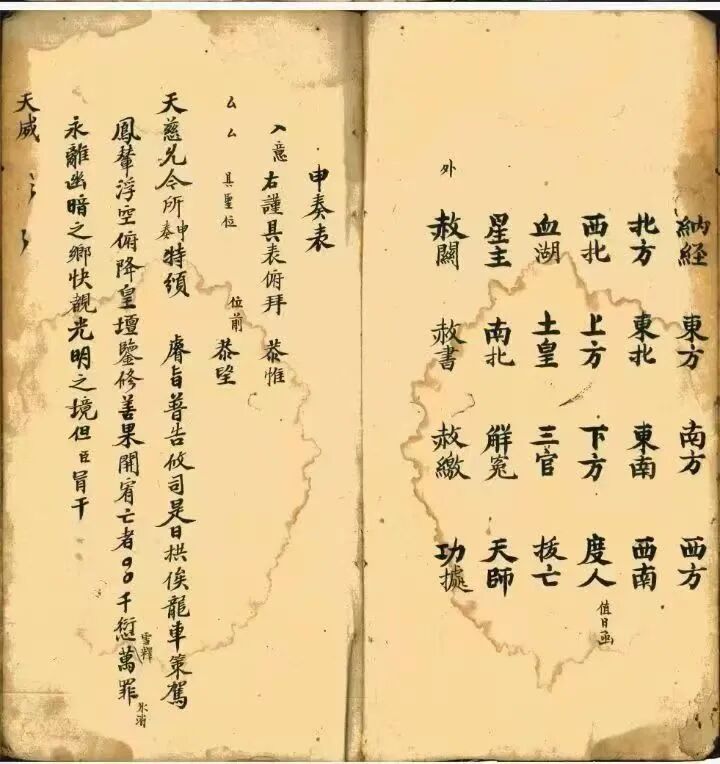 納經 東方 南方 西方
北方 東北 東南 西南
西北 上方 下方 度人 值日函
血湖 土皇 三官 拔亡
星主 南北 觧冤 天師
外 赦關 赦書 赦繳 功據
申奏表
入意 右謹具表俯拜 恭惟
厶厶 具聖位 位前 恭望
天慈允令所申奏特頒 睿旨普告攸司是日拱俟龍車策駕
鳳輦浮空俯降皇壇鑒修善果開宥亡者千愆雪釋萬罪氷消
永離幽暗之鄉快觀光明之境但臣冐干
天威